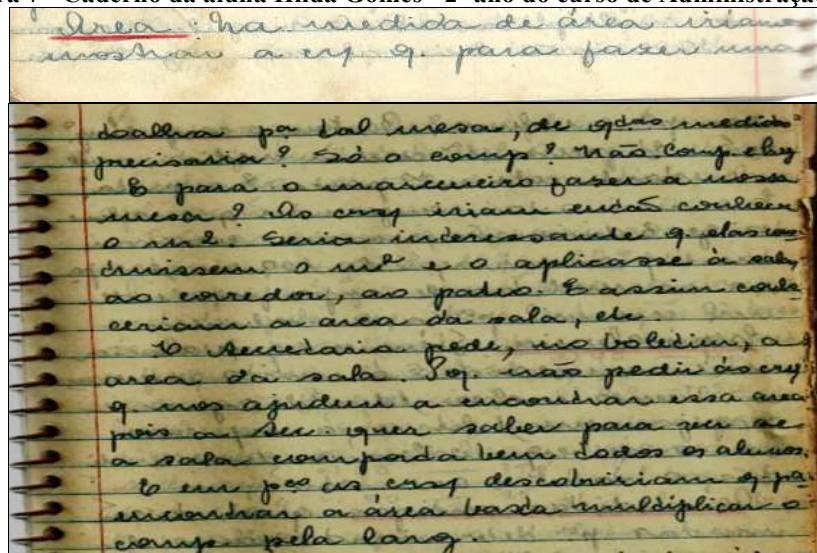 ra 7 - Caderno da aluna Hilda Gomes - 2º ano do curso de Administração
Área : Na medida de área iríamos
mostrar a crç q. para fazer uma
toalha pª tal mesa, de qdas medidas
precisaria? Só o comp? Não. Comp. e larg
E para o marceneiro fazer a nossa
mesa? As crçs iriam então conhecer
o m2. Seria interessante q. elas cons
truissem o m2 e o aplicasse à sala,
ao corredor, ao patio. E assim conhe
ceriam a area da sala, etc
A Secretaria pede, no boletim, a
area da sala. Porq. não pedir ás crçs
q. nos ajudem a encontrar essa area
pois a Sec. quer saber para ver se
a sala comporta bem todos os alunos.
E em pco as crçs descobririam q pa
encontrar a área basta multiplicar o
comp pela larg.